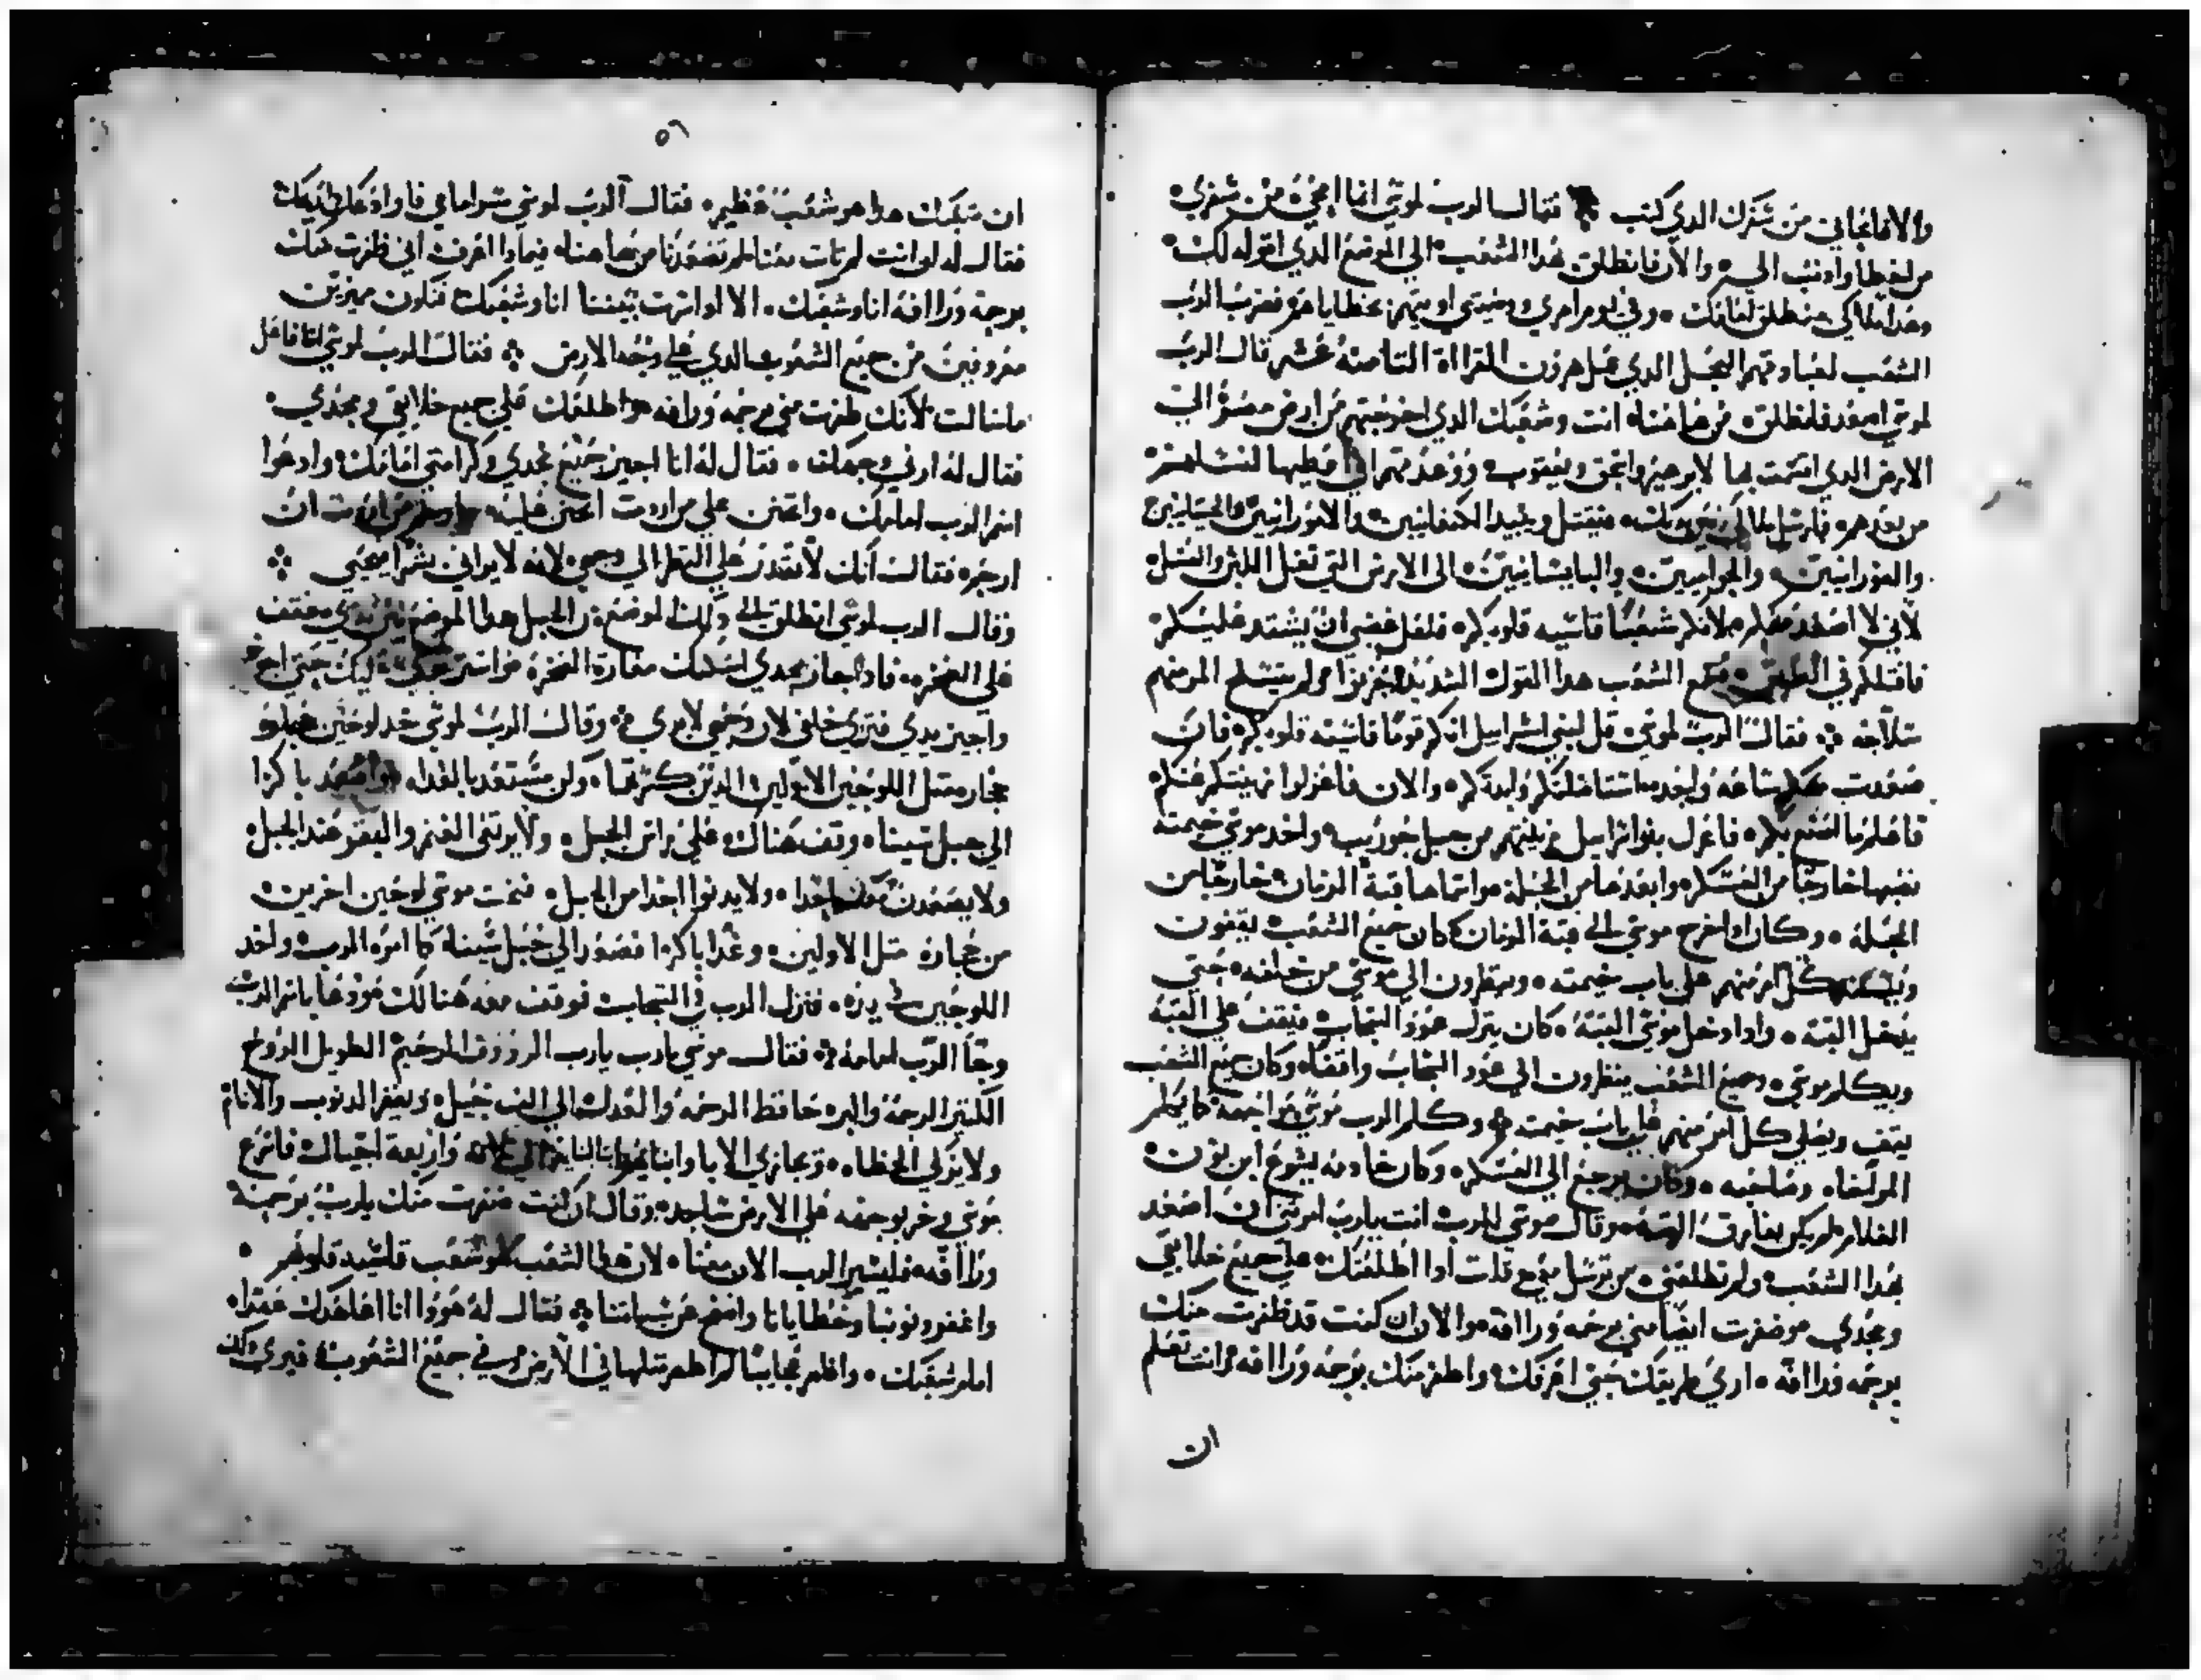 والا فامحاني من سفرك الدي كتب فقال الرب لموسي انما امحي من سفري
من اخطا وادنب الي والان فانطلق بهدا الشعب الي الموضع الدي اقوله لك
وهدا ملاكي منطلق وفي يوم امري فضرب الرب
الشعب لعبادتهم العجل الدي عمل هرون القرااة التامنة عشر قال الرب
لموسي اصعد فانطلق من هاهناه انت وشعبك الدي اخرجتهم من ارض مصر الي
الارض الدي اقسمت بها لابرهيم واسحق ويعقوب ووعدتهم اني معطيها لنسلهم
من بعدهم فارسل ملاكي فيقتل ويبيد الكنعانيين والامورانيين والحيتانيين
والفورانيين والحوايين واليابسانيين الي الارض التي تغل اللبن والعسل
لاني لا اصعد معكم لانكم شعبا قاسيه قلوبكم فلعل غضبي ان يشتد عليكم
فاقتلكم في الطريق الشعب هدا القول الشديد
سلاحه فقال الرب لموسي قل لبني اسراييل انكم قوما قاسيه قلوبكم فان
صعدت معكم ساعه واحده والان فاعزلوا
فاعلم ما اصنع بكم فاعزل بنوا اسراييل زينتهم من جبل حوريب واخد موسي خيمته
نصبها خارجا من العسكر وابعدها من المحلة واسماها قبة الزمان خارجا من
المحلة وكان ادا خرج موسي الي قبة الزمان كان جميع الشعب يقفون
كل امر منهم علي باب خيمته وينظرون الي موسي من خلفه حتي
يدخل القبه وادا دخل موسي القبة كان ينزل عمود السحاب فيقف علي القبة
ويكلم موسي وجميع الشعب ينظرون الي عمود السحاب واقفا وكان جميع الشعب
يقف ويصلي كل امر منهم علي باب خيمته وكلم الرب موسي مواجهه كما يكلم
المر صاحبه وكان يرجع الي العسكر وكان خادمه يشوع ابن نون
الغلام لم يكن يفارق القبة وقال موسي للرب انت يارب امرتني ان اصعد
بهدا الشعب ولم تطلعني من ترسل معي قلت ادا اطلعتك علي جميع خلايقي
ومجدي وظفرت ايضا مني برحمه ورأافه والان ان كنت قد ظفرت منك
برحمه ورأافه اري طريقك حتي اعرفك واظفر منك برحمه ورأافه وانت تعلم
ان
٥٦
ان شعبك هدا هو شعب عظيم فقال الرب لموسي سر امامي فاواد
فقال له لو انت لم تات معنا لم تصعدنا من هاهناه فبمادا اعرف اني ظفرت منك
برحمة ورأافه انا وشعبك الا ادا سرت بيننا انا وشعبك فنكون مميزين
معروفين من جميع الشعوب الدي علي وجه الارض فقال الرب لموسي انا فاعل
ماسالت لانك ظفرت مني برحمه ورأافه واطلعك علي جميع خلايقي ومجدي
فقال له ارني وجهك فقال له انا اجيز جميع مجدي وكرامتي امامك وادعوا
اسم الرب امامك واتحنن علي من اردت اتحنن عليه وارحم من اردت ان
ارحمه فقال انك لا تقدر علي النظر الي وجهي لانه لا يراني بشرا يحيي
وقال الرب لموسي انطلق الي دلك الموضع من الجبل فتقف
علي الصخره فادا جاز مجدي اسكنك مغارة الصخرة واستر بيدي عليك حتي اجوز
واجيز يدي فتري خلفي لان وجهي لا يري وقال الرب لموسي خد لوحين
حجاره متل اللوحين الاولين الدين كسرتهما وكن مستعد بالغداه واصعد باكرا
الي جبل سينا وقف هناك علي راس الجبل ولا يوتي الغنم والبقر عند الجبل
ولا يصعدن معك احدا ولا يدنوا احدا من الجبل فنحت موسي لوحين اخرين
من حجارة متل الاولين وغدا باكرا فصعد الي جبل سيناه كما امره الرب واخد
اللوحين في يده فنزل الرب في السحاب فوقف معه هنالك ودعا باسم الرب
وجا الرب امامه فقال موسي يارب يارب الرووف الرحيم الطويل الروح
الكتير الرحمة والبر حافظ الرحمة والعدل الي الف جيل ويغفر الدنوب والاتام
ولا يزكي الخطاه ويجازي الابا وابنا واربعة اجيال فاسرع
موسي وخر بوجهه علي الارض ساجدا وقال ان كنت ظفرت منك يارب برحمة
ورأافه فليسير الرب الان معنا لان هدا الشعب هو شعب قاسيه قلوبهم
واغفر دنوبنا وخطايانا واصفح عن سياتنا فقال له هودا انا اعاهدك عهدا
امام شعبك واظهر عجايبا لم اظهر متلها في الارض وفي جميع الشعوب فيري